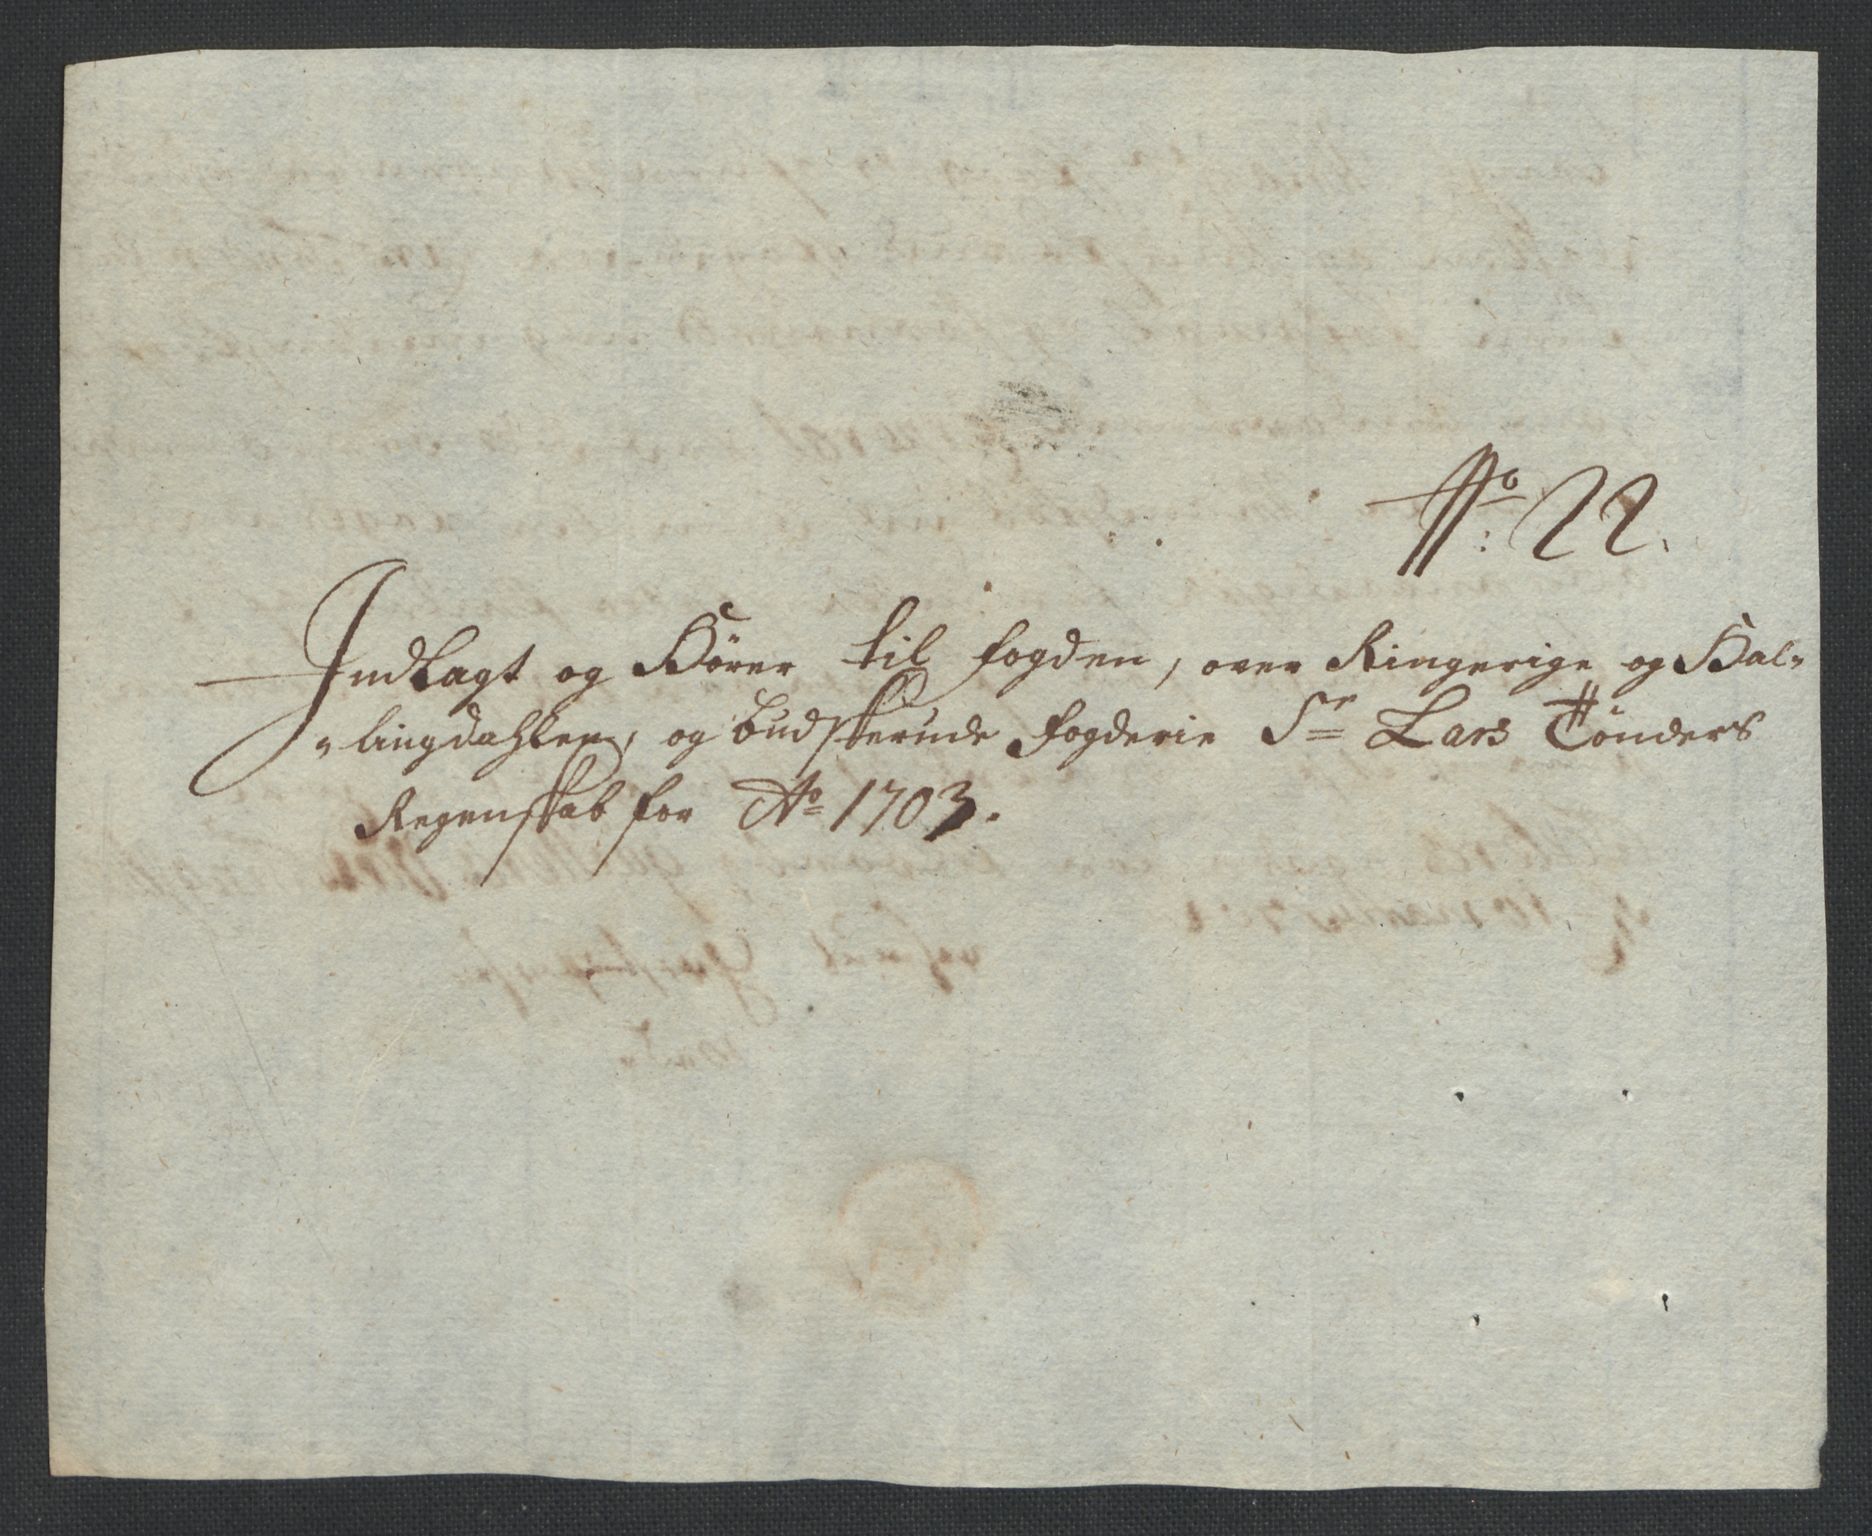 No: 22.
Indlagt og Hörer til fogden, over Ringerige og Hal=
=lingdahlen, og Budskerude fogderie Sr Lars Tönders
Regenskab for Ao 1703.